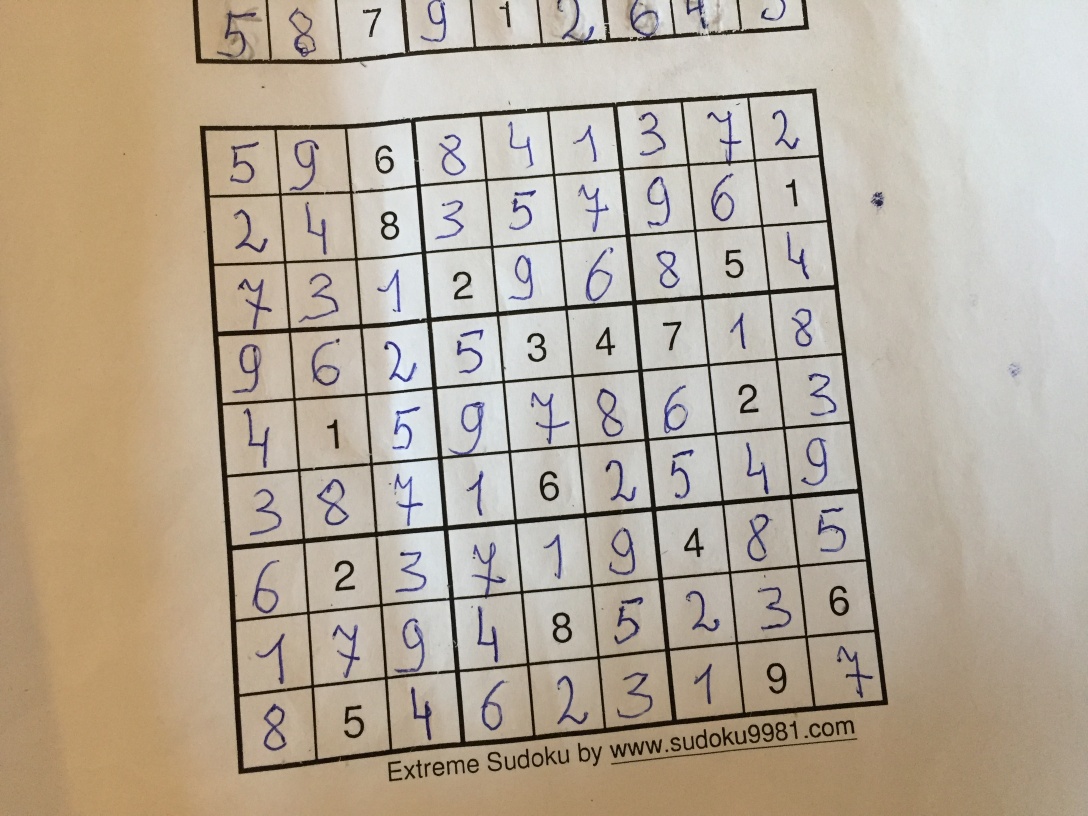 5 8 7 9 1 2 6 4
5 9 6 8 4 1 3 7 2
2 4 8 3 5 7 9 6 1
7 3 1 2 9 6 8 5 4
9 6 2 5 3 4 7 1 8
4 1 5 9 7 8 6 2 3
3 8 7 1 6 2 5 4 9
6 2 3 7 1 9 4 8 5
1 7 9 4 8 5 2 3 6
8 5 4 6 2 3 1 9 7
Extreme Sudoku by www.sudoku9981.com